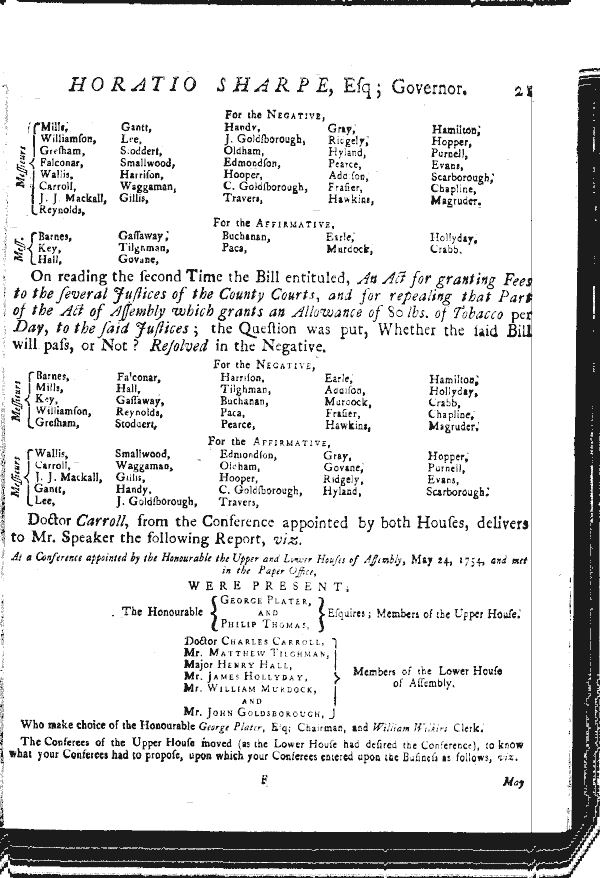 HORATIO SHARPE, Eſq; Governor. 21
For the NEGATIVE,
Meſſieurs
Mills, Gantt, Handy, Gray, Hamilton,
Williamſon, Lee, J. Goldſborough, Ridgely, Hopper,
Greſham, Stoddert, Oldham, Hyland, Purnell,
Falconar, Smallwood, Edmondſon, Pearce, Evans,
Wallis, Harriſon, Hooper, Addiſon, Scarborough,
Carroll, Waggaman, C. Goldſborough, Fraſier, Chapline,
J. J. Mackall, Gillis, Travers, Hawkins, Magruder.
Reynolds,
For the AFFIRMATIVE,
Meſſ.
Barnes, Gaſſaway, Buchanan, Earle, Hollyday,
Key, Tilghman, Paca, Murdock, Crabb.
Hall, Govane,
On reading the ſecond Time the Bill entituled, An Act for granting Fees
to the ſeveral Juſtices of the County Courts, and for repealing that Part
of the Act of Aſſembly which grants an Allowance of 80 lbs. of Tobacco per
Day, to the ſaid Juſtices; the Queſtion was put, Whether the ſaid Bill
will paſs, or Not? Reſolved in the Negative.
For the NEGATIVE,
Meſſieurs
Barnes, Falconar, Harriſon, Earle, Hamilton,
Mills, Hall, Tilghman, Addiſon, Hollyday,
Key, Gaſſaway, Buchanan, Murdock, Crabb,
Williamſon, Reynolds, Paca, Fraſier, Chapline,
Greſham, Stoddert, Pearce, Hawkins, Magruder.
For the AFFIRMATIVE,
Meſſieurs
Wallis, Smallwood, Edmondſon, Gray, Hopper,
Carroll, Waggaman, Oldham, Govane, Purnell,
J. J. Mackall, Gillis, Hooper, Ridgely, Evans,
Gantt, Handy, C. Goldſborough, Hyland, Scarborough.
Lee, J. Goldſborough, Travers,
Doctor Carroll, from the Conference appointed by both Houſes, delivers
to Mr. Speaker the following Report, viz.
At a Conference appointed by the Honourable the Upper and Lower Houſes of Aſſembly, May 24, 1754, and met
in the Paper Office,
WERE PRESENT,
The Honourable GEORGE PLATER, AND PHILIP THOMAS, Eſquires; Members of the Upper Houſe.
Doctor CHARLES CARROLL,
Mr. MATTHEW TILGHMAN,
Major HENRY HALL,
Mr. JAMES HOLLYDAY,
Mr. WILLIAM MURDOCK,
AND
Mr. JOHN GOLDSBOROUGH,
Members of the Lower Houſe
of Aſſembly.
Who make choice of the Honourable George Plater, Eſq; Chairman, and William Wilkins Clerk.
The Conferees of the Upper Houſe moved (as the Lower Houſe had deſired the Conference), to know
what your Conferees had to propoſe, upon which your Conferees entered upon the Buſineſs as follows, viz.
F May